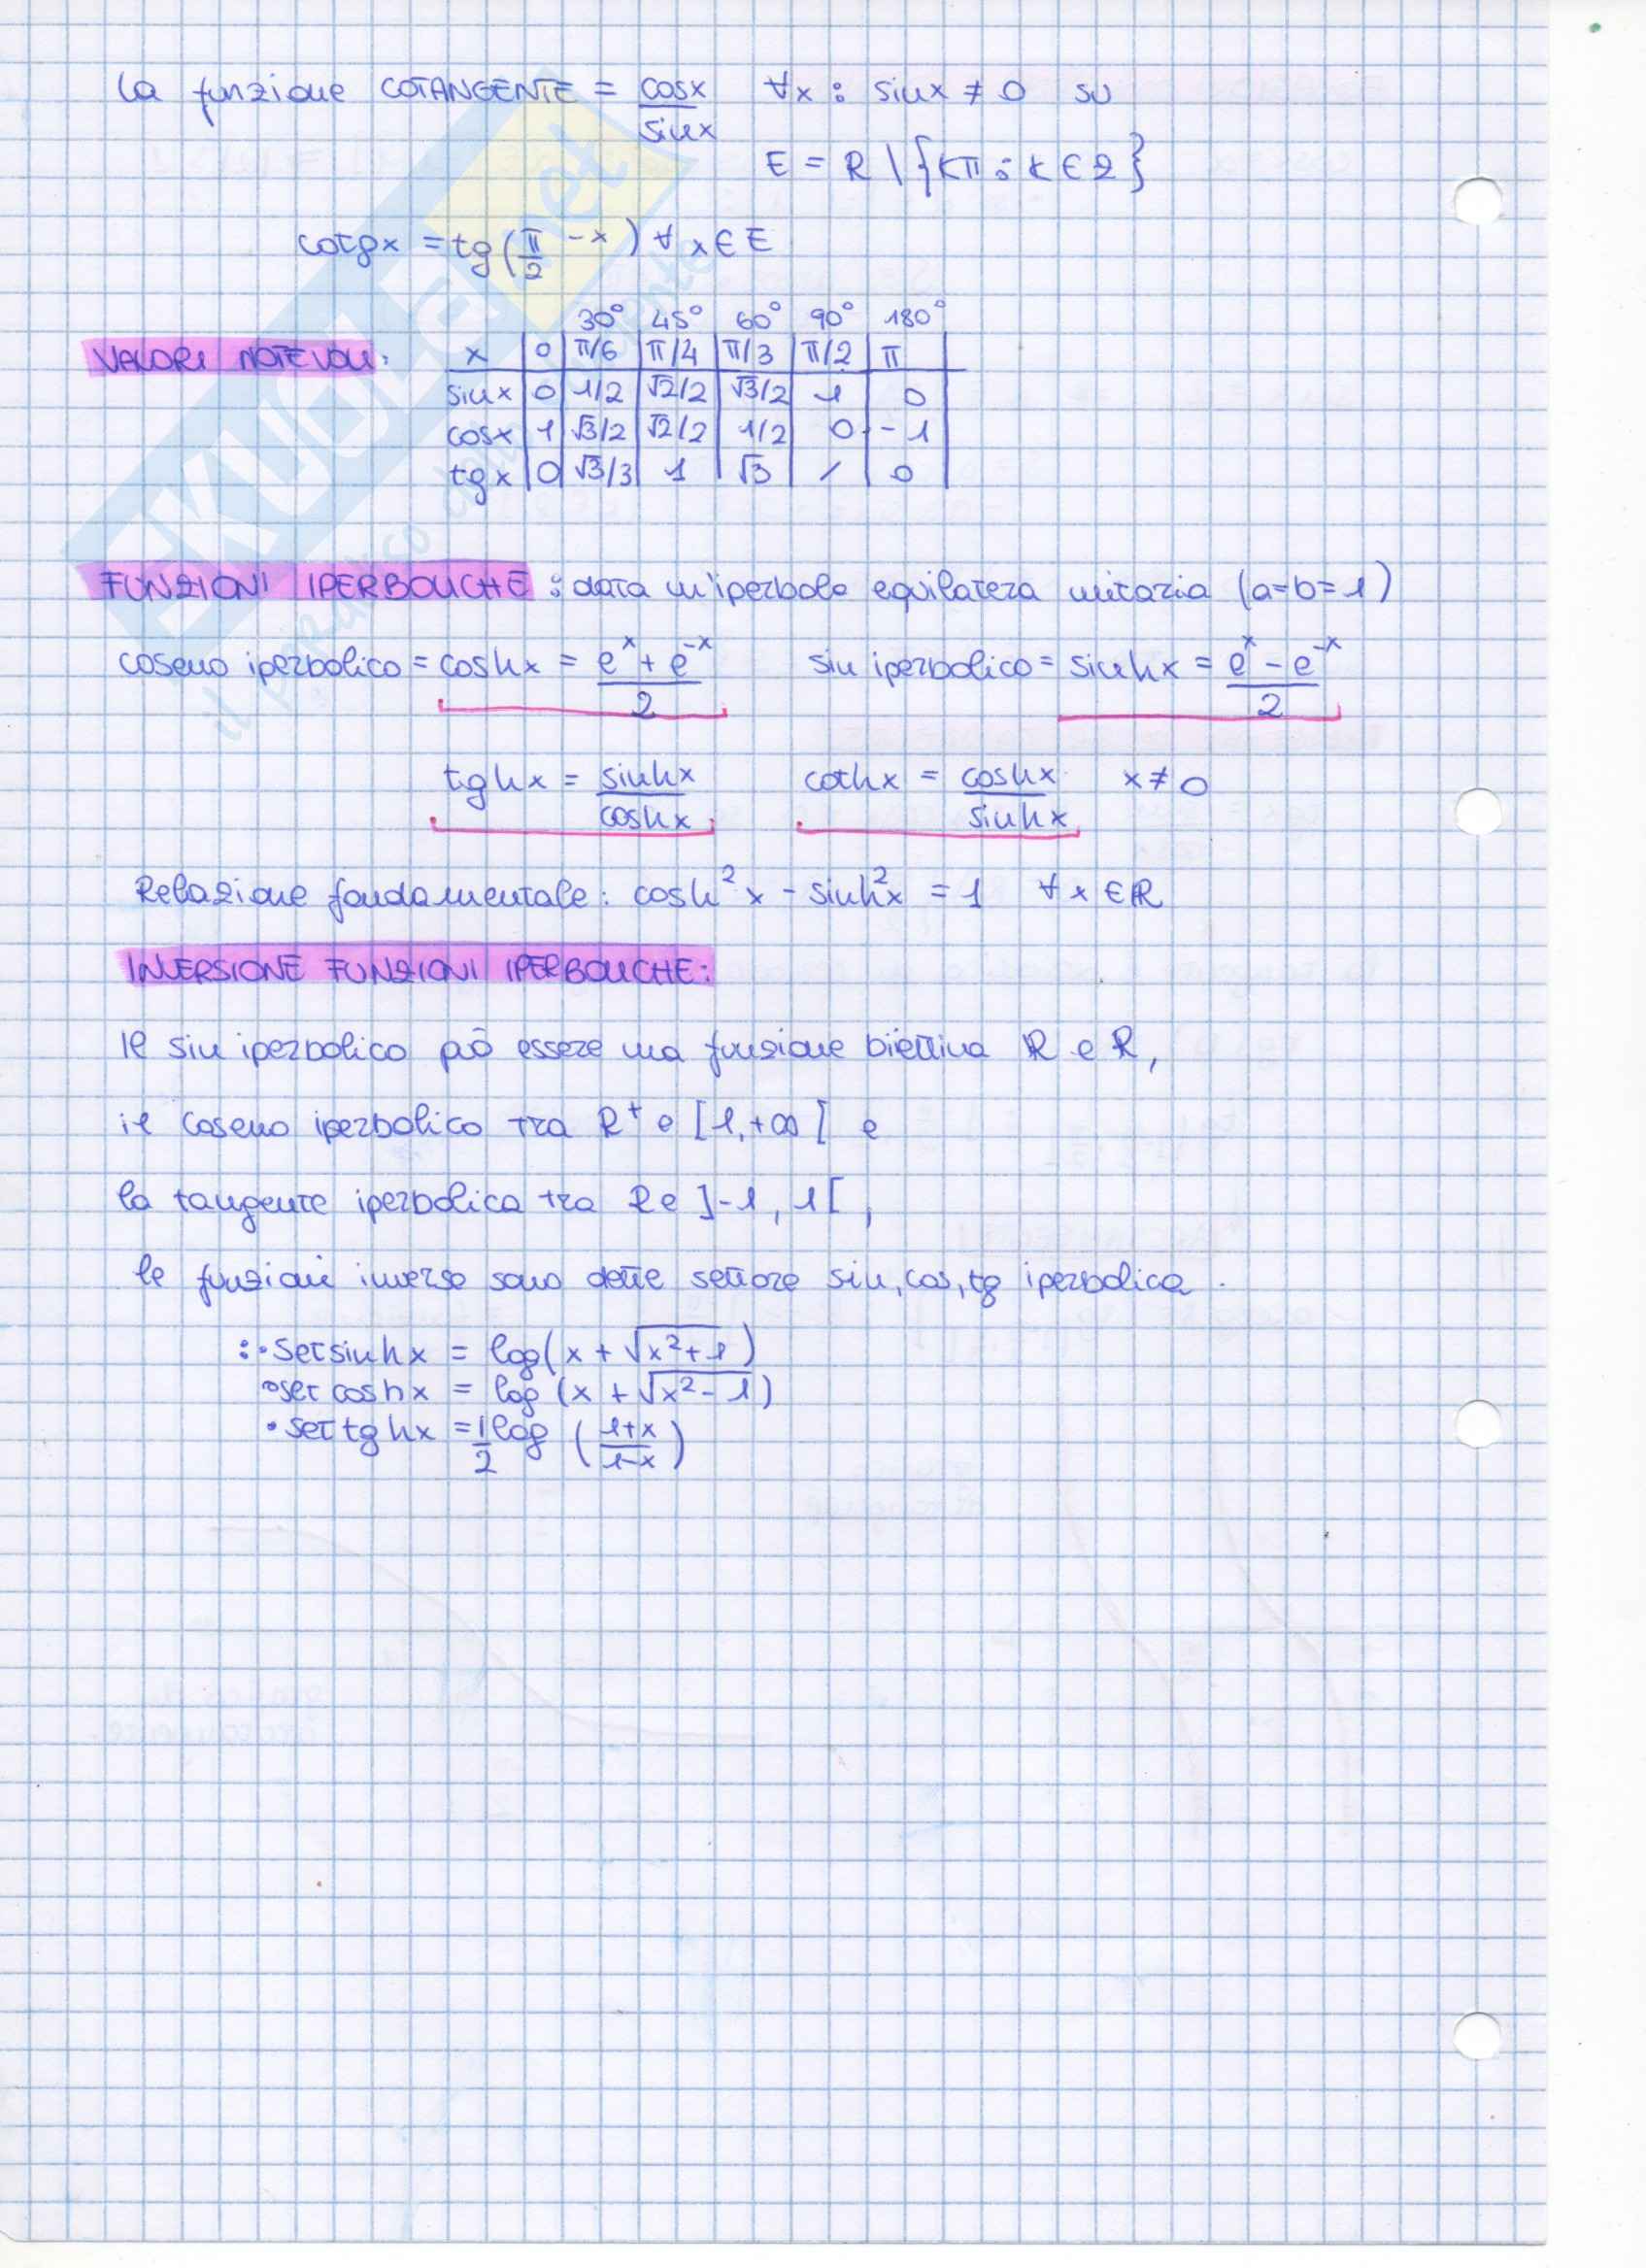 la funzione COTANGENTE = cosx/sinx ∀x : sinx ≠ 0 su
E = R \ {Kπ : K ∈ Z}
cotgx = tg(π/2 - x) ∀ x ∈ E
30° 45° 60° 90° 180°
VALORI NOTEVOLI: x | 0 | π/6 | π/4 | π/3 | π/2 | π
sinx | 0 | 1/2 | √2/2 | √3/2 | 1 | 0
cosx | 1 | √3/2 | √2/2 | 1/2 | 0 | -1
tgx | 0 | √3/3 | 1 | √3 | / | 0
FUNZIONI IPERBOLICHE : data un'iperbole equilatera unitaria (a=b=1)
coseno iperbolico = coshx = (e^x + e^-x)/2 sin iperbolico = sinhx = (e^x - e^-x)/2
tghx = sinhx/coshx cothx = coshx/sinhx x ≠ 0
Relazione fondamentale: cosh²x - sinh²x = 1 ∀ x ∈ R
INVERSIONE FUNZIONI IPERBOLICHE:
Il sin iperbolico può essere una funzione biettiva R e R,
il coseno iperbolico tra R⁺ e [1,+∞[ e
la tangente iperbolica tra R e ]-1, 1[,
le funzioni inverse sono dette settore sin, cos, tg iperbolica.
: · setsinhx = log(x + √x²+1)
· set coshx = log (x + √x²-1)
· set tghx = 1/2 log ((1+x)/(1-x))
SKUOLA.net